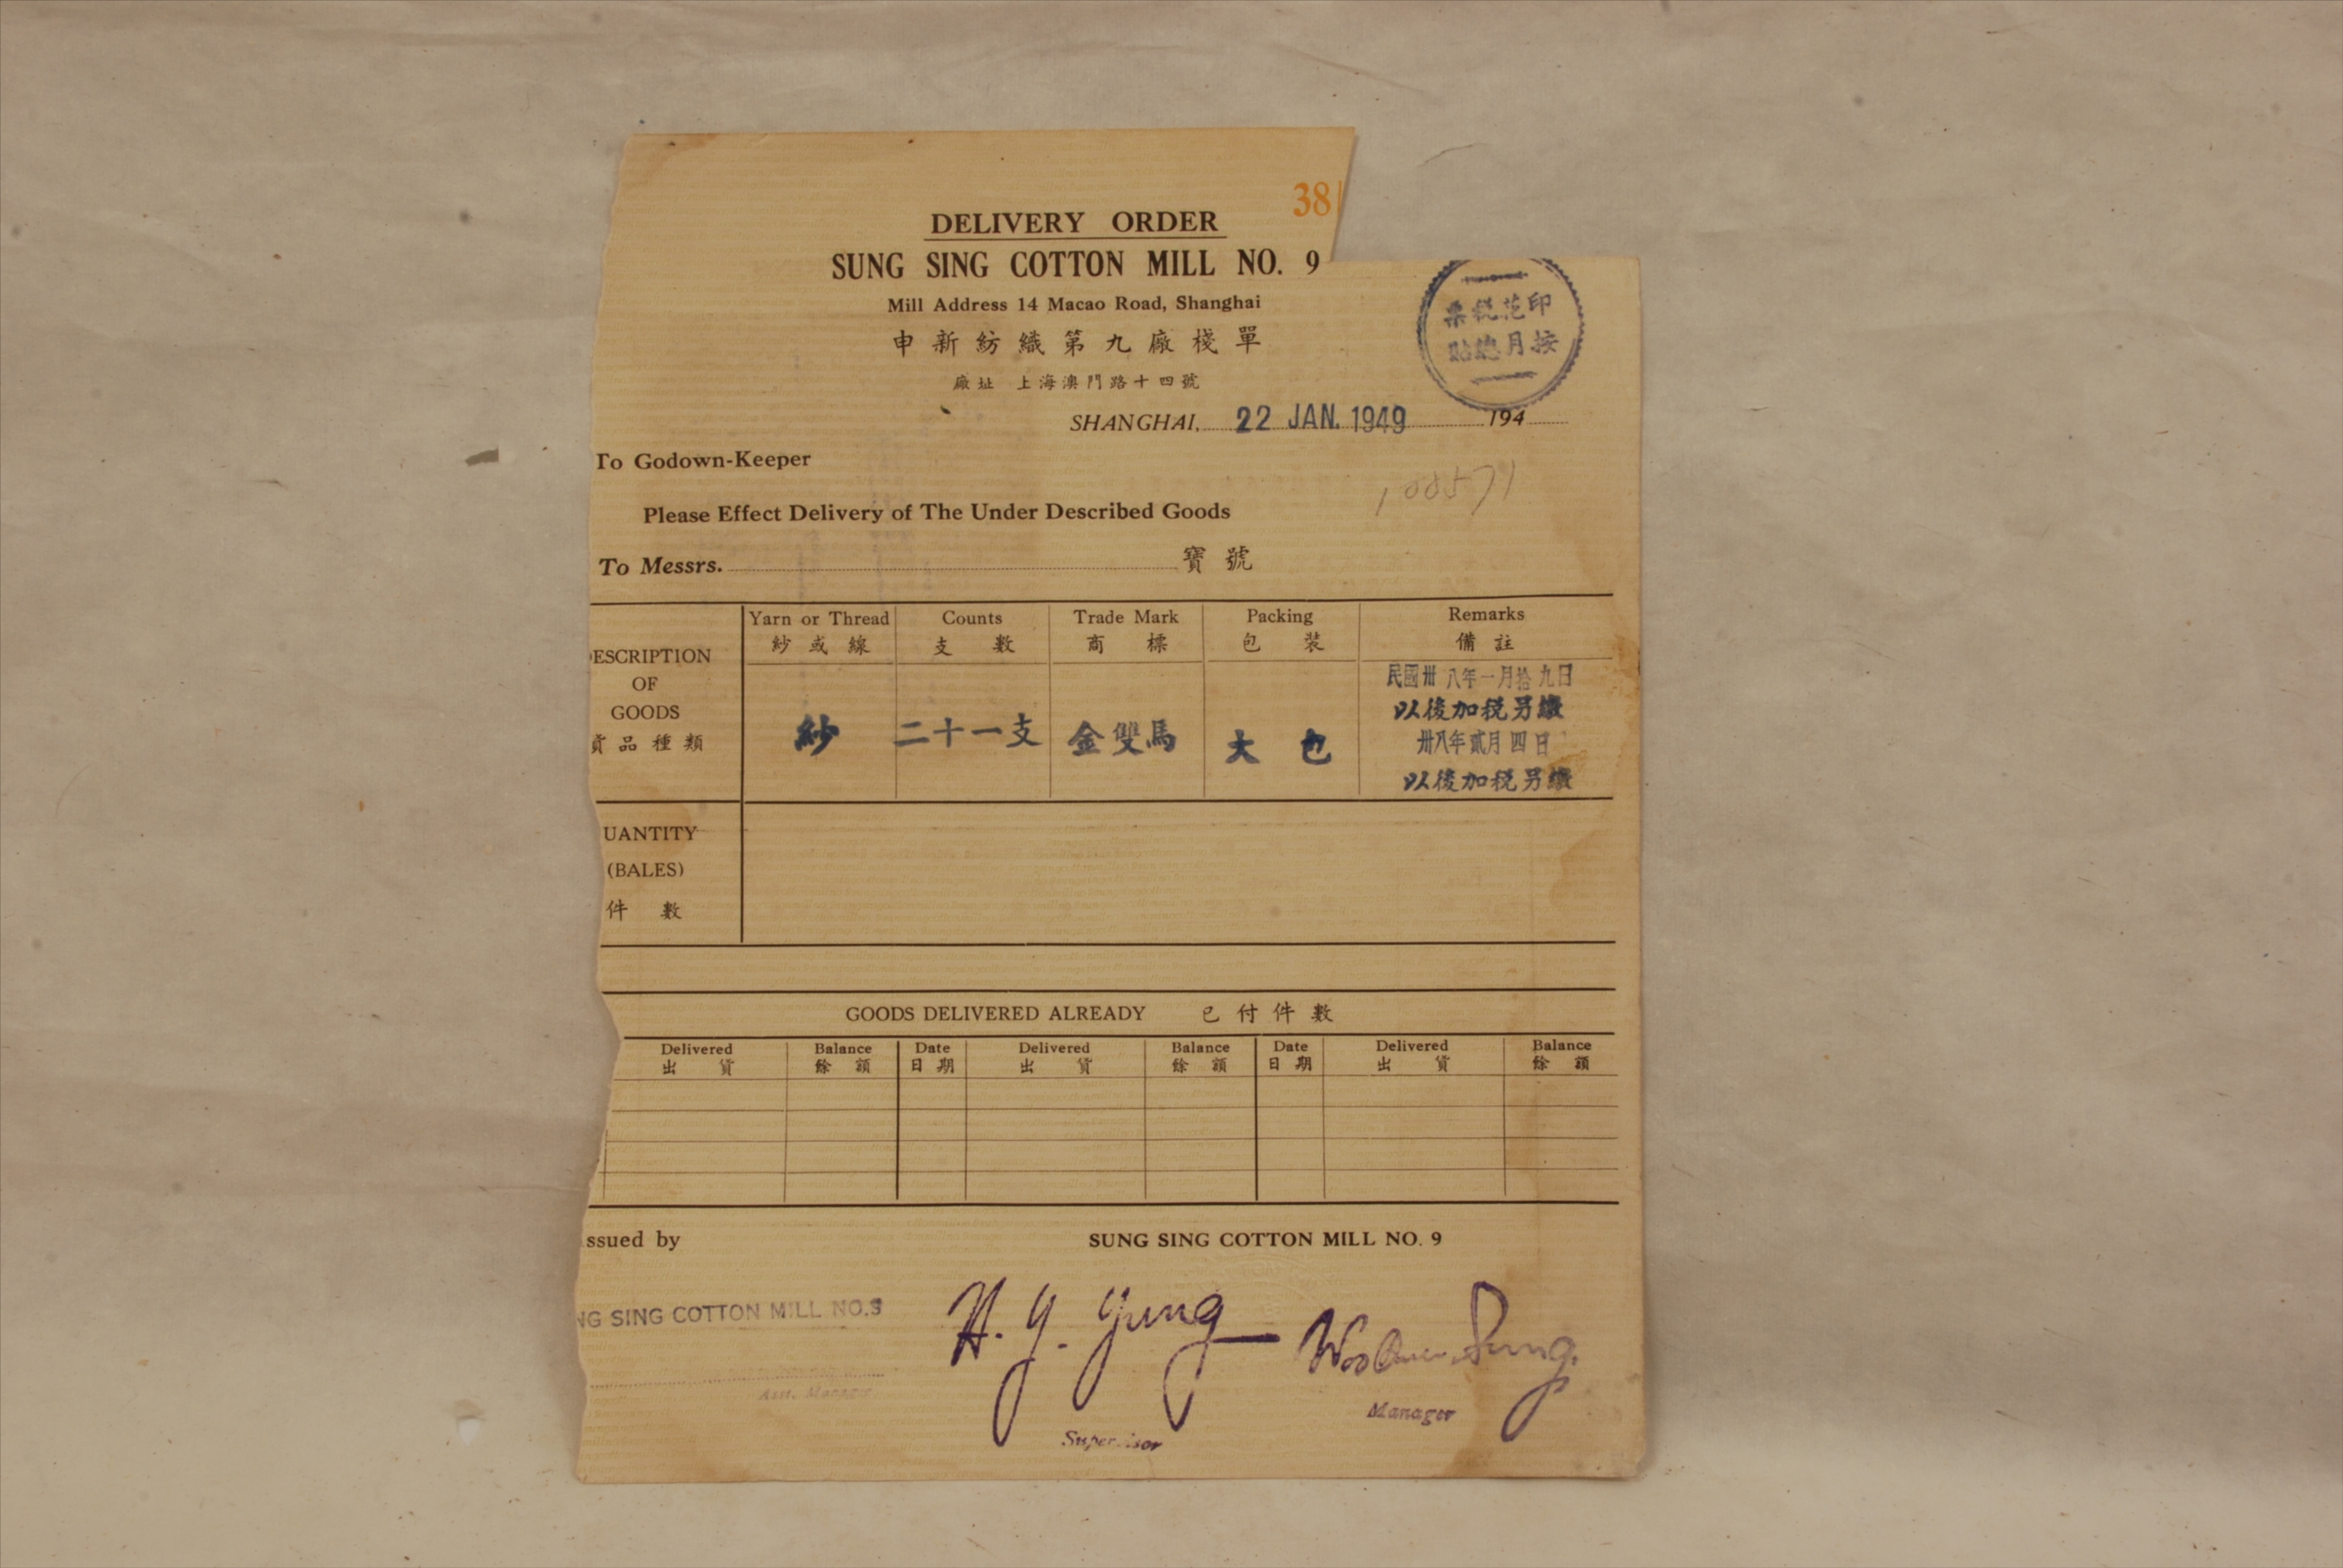 38
DELIVERY ORDER
SUNG SING COTTON MILL NO. 9
Mill Address 14 Macao Road, Shanghai
申新紡織第九廠棧單
廠址 上海澳門路十四號
印花稅票
按月總貼
SHANGHAI, 22 JAN. 1949 194
To Godown-Keeper
100571
Please Effect Delivery of The Under Described Goods
To Messrs. 寶號
ESCRIPTION
OF
GOODS
貨品種類
Yarn or Thread Counts Trade Mark Packing Remarks
紗或線 支數 商標 包裝 備註
紗 二十一支 金雙馬 大包
民國卅八年一月拾九日
以後加稅另繳
卅八年貳月四日
以後加稅另繳
UANTITY
(BALES)
件數
GOODS DELIVERED ALREADY 已付件數
Delivered Balance Date Delivered Balance Date Delivered Balance
出貨 餘額 日期 出貨 餘額 日期 出貨 餘額
ssued by SUNG SING COTTON MILL NO. 9
NG SING COTTON MILL NO.9
H. Y. Yung
Asst. Manager
Supervisor
Manager